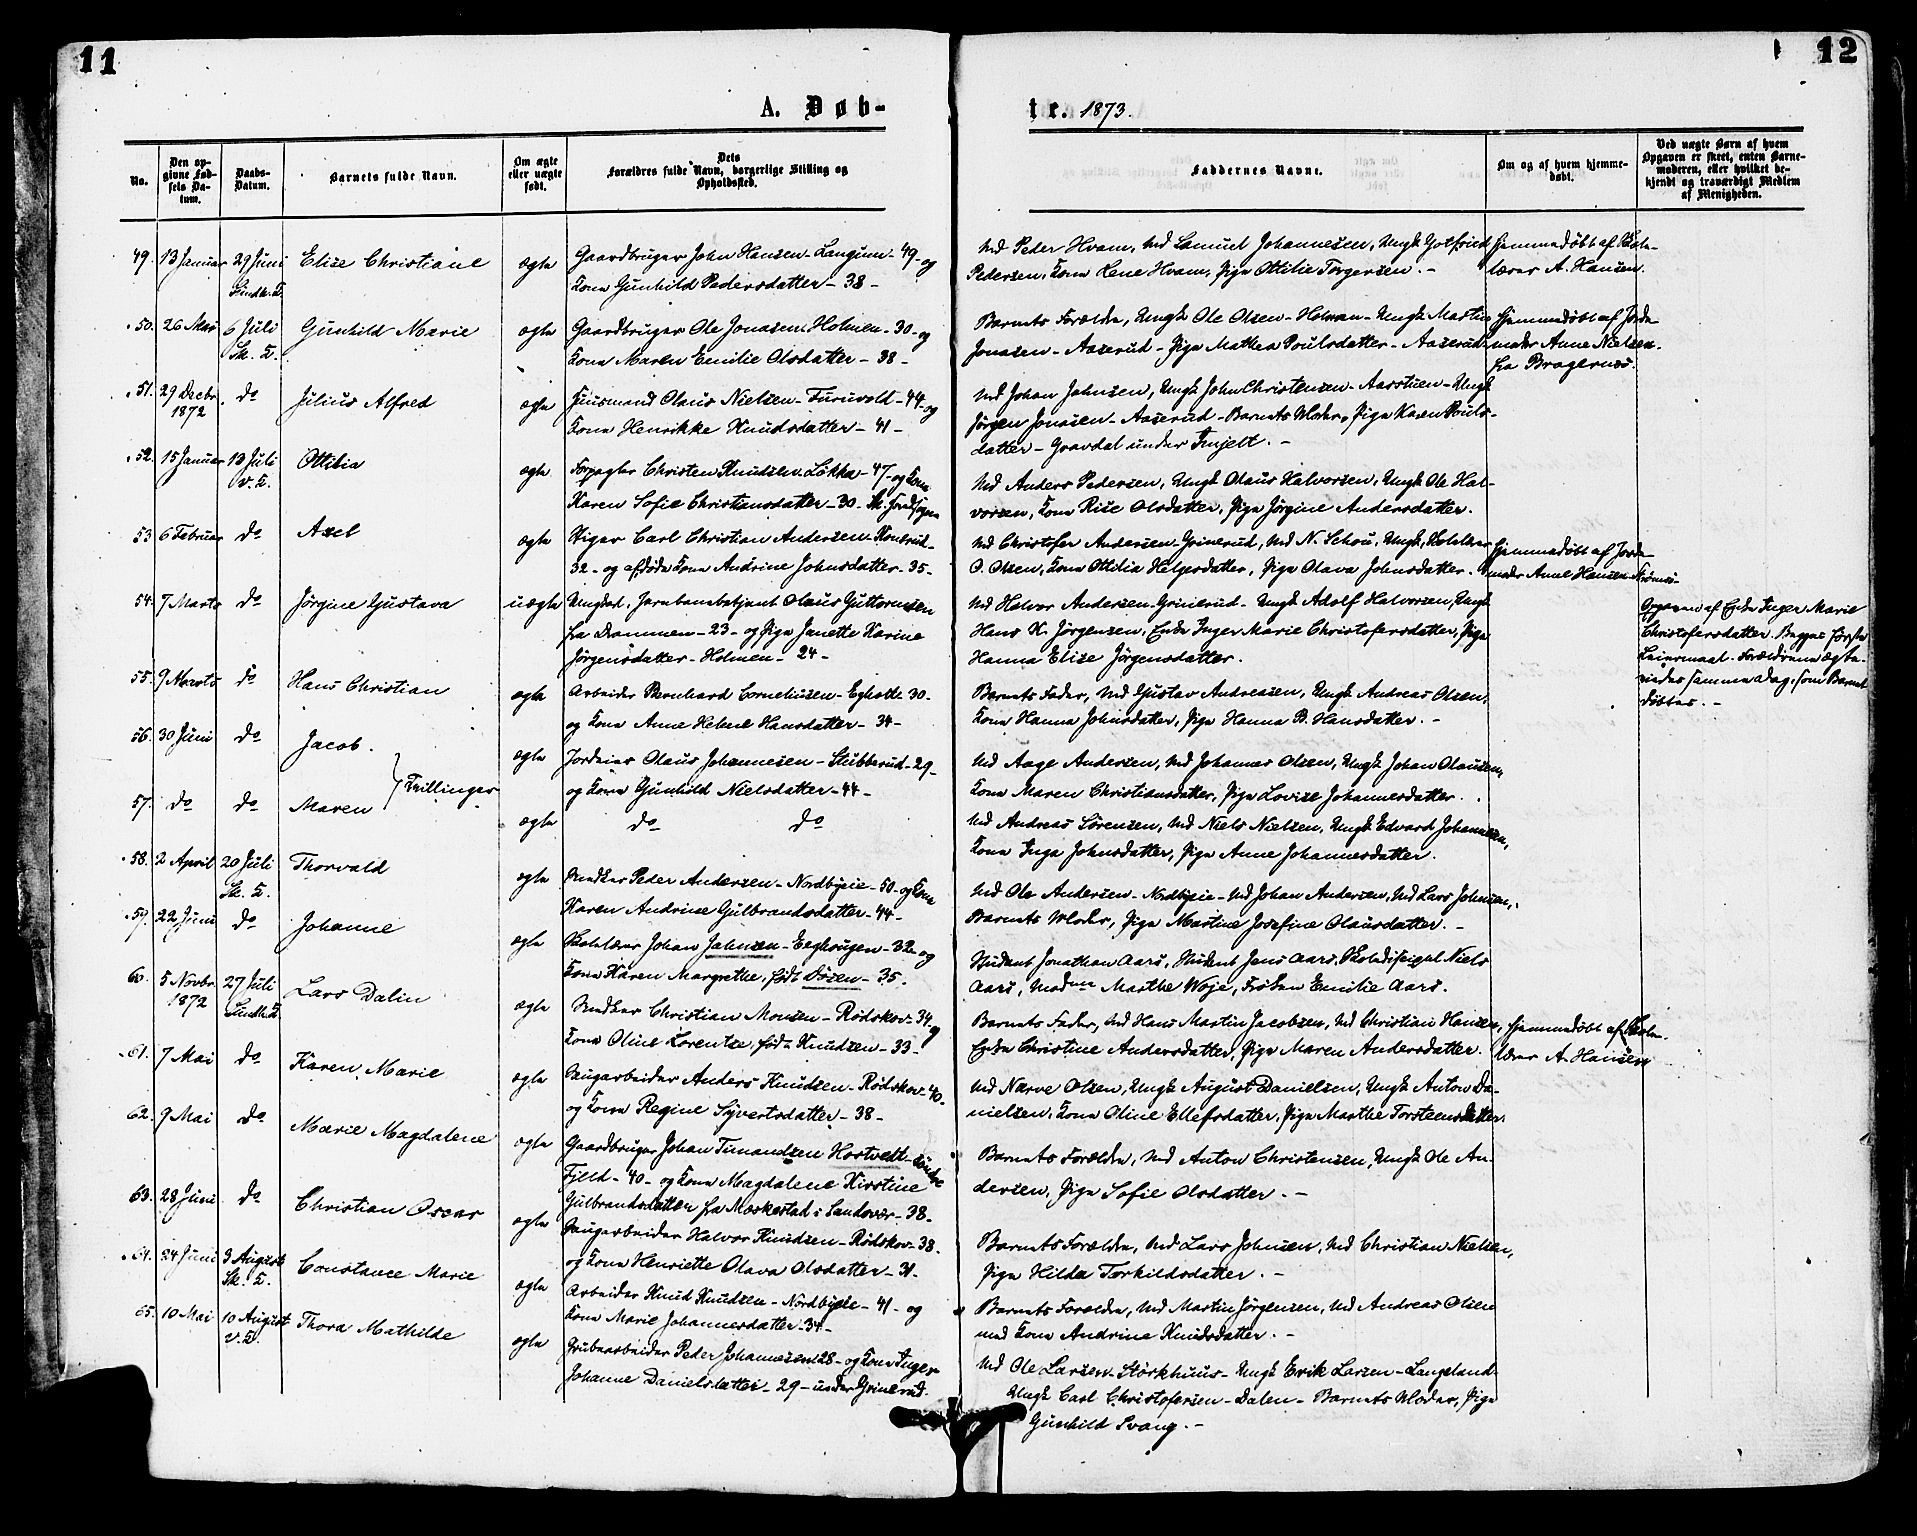 11
12
A. Døb-
te. 1873.
No.
Den op-
givne Fød-
sels Da-
tum.
Daabs-
Datum.
Barnets fulde Navn.
Om ægte
eller uægte
født.
Dets
Forældres fulde Navn, borgerlige Stilling og
Opholdssted.
Faddernes Navne.
Om og af hvem hjemme-
døbt.
Ved uægte Børn af hvem
Opgaven er skeet, enten Barne-
moderen, eller hvilket be-
kjendt og troværdigt Medlem
af Menigheden.
49. 13 Januar 29 Juni Elise Christiane ægte Gaardbruger John Hansen Langum - 49 - og
Kone Gunhild Pedersdatter - 38 -
Md Peder Hvam, Md Samuel Johannesen, Ungk Gotfried
Pedersen, Kone Lene Hvam, Pige Ottilie Torgersen. -
Hjemmedøbt af Skole-
lærer A. Hansen.
50. 26 Mai 6 Juli Sk. K. Gunhild Marie ægte Gaardbruger Ole Jonasen Holmen - 30 - og
Kone Maren Emilie Olsdatter - 38 -
Barnets Forældre, Ungk Ole Olsen - Holmen - Ungk Martin
Jonasen - Aaserud - Pige Mathea Poulsdatter - Aaserud
Hjemmedøbt af Jorde-
moder Anne Nielsen
fra Bragernes.
51. 29 Decbr 1872 do Julius Alfred ægte Huusmand Olaus Nielsen - Furuvold - 44 - og
Kone Henrikke Knudsdatter - 41 -
Md Johan Johnsen, Ungk John Christensen - Aasstuen - Ungk
Jørgen Jonasen - Aaserud - Barnets Moder, Pige Karen Pouls-
datter - Gravdal under
52. 15 Januar 13 Juli V. K. Ottilia ægte Forpagter Christen Knudsen Løkka - 47 - og Kone
Karen Sofie Christiansdatter - 30 -
Md Anders Pedersen, Ungk Olaus Halvorsen, Ungk Ole Hal-
vorsen, Kone Rise Olsdatter, Pige Jørgine Andersdatter.
53 6 Februar do Axel ægte Carl Christian Andersen
32 - og afdøde Kone Andrine Johnsdatter - 35 -
Md Christofer Andersen Grinerud, Md N. Schou, Ungk, Skolelærer
O. Olsen, Kone Ottilia Helgesdatter, Pige Olava Johnsdatter.
Hjemmedøbt af Jorde-
moder Anne Hansen
54. 7 Marts do Jørgine Gustava uægte Ungkarl, Jernbanebetjent Olaus Guttormsen
fra Drammen - 23 - og Pige Janette Karine
Jørgensdatter - Holmen - 24 -
Md Halvor Andersen Grinerud - Ungk Adolf Halvorsen, Ungk
Hans K. Jørgensen, Enke Inger Marie Christofersdatter, Pige
Hanna Elise Jørgensdatter.
Opgaven af Enke Inger Marie
Christofersdatter. Begges første
Leiermaal. Forældrene ægte-
viedes samme Dag, som Barnet
døbtes. -
55. 9 Marts do Hans Christian ægte Arbeider Bernhard Corneliusen - 30 -
og Kone Anne Helene Hansdatter - 34 -
Barnets Fader, Md Gustav Andreasen, Ungk Andreas Olsen,
Kone Hanna Johnsdatter, Pige Hanna B. Hansdatter. -
56. 30 Juni do Jacob. } Tvillinger ægte Jordeier Olaus Johannesen - Stubberud - 29 -
og Kone Gunhild Nielsdatter - 44 -
Md Aage Andersen, Md Johannes Olsen, Ungk Johan Olausen,
Kone Maren Christiansdatter, Pige Lovise Johannesdatter.
57. do do Maren ægte do do
Md Andreas Sørensen, Md Niels Nielsen, Ungk Edvard Johannesen,
Kone Inga Johnsdatter, Pige Anne Johannesdatter.
58. 2 April 20 Juli Sk. K. Thorvald ægte Snedker Peder Andersen - Nordbyeie - 50 - og Kone
Karen Andrine Gulbrandsdatter - 44 -
Md Ole Andersen - Nordbyeie - Md Johan Andersen, Md Lars Johnsen,
Barnets Moder, Pige Martine Josefine Olausdatter. -
59. 22 Juni do Johanne ægte Skolelærer Johan Johnsen - Eeghougen - 32 - og
Kone Karen Margrethe, født Døsen - 35.
Student Jonathan Aars, Student Jens Aars, Skolediscipel Niels
Aars, Madme Marthe Woje, Frøken Emilie Aars.
60. 5 Novbr. 1872 27 Juli Lars Dalin ægte Snedker Christian Monsen - Rødskov - 34 og
Kone Oline Lorentze, født Knudsen - 33 -
Barnets Fader, Md Hans Martin Jacobsen, Md Christian Hansen,
Enke Christine Andersdatter, Pige Maren Andersdatter.
Hjemmedøbt af Skole-
lærer A. Hansen
61. 7 Mai do Karen Marie ægte Saugarbeider Anders Knudsen - Rødskov - 40 -
og Kone Regine Syvertsdatter - 38 -
Md Narve Olsen, Ungk August Danielsen, Ungk Anton Da-
nielsen, Kone Oline Ellefsdatter, Pige Marthe Torsteensdatter.
62. 9 Mai do Marie Magdalene ægte Gaardbruger Johan Timandsen Hostvedt - søndre
Fjeld - 40 - og Kone Magdalene Kirstine
Gulbrandsdatter fra Mærkestad i Sandsvær - 38 -
Barnets Forældre, Md Anton Christensen, Ungk Ole An-
dersen, Pige Sofie Olsdatter. -
63. 28 Juni do Christian Oscar ægte Saugarbeider Halvor Knudsen - Rødskov - 38.
og Kone Henriette Olava Olsdatter - 31 -
Barnets Forældre, Md Lars Johnsen, Md Christian Nielsen,
Pige Hilda Torkildsdatter. -
64. 24 Juni 3 August Sk. K. Constance Marie ægte Arbeider Knud Knudsen - Nordbyeie - 41 - og
Kone Marie Johannesdatter - 34 -
Barnets Forældre, Md Martin Jørgensen, Md Andreas Olsen
med Kone Andrine Knudsdatter. -
65. 10 Mai 10 August V. K. Thora Mathilde ægte Grubearbeider Peder Johannesen 28 - og Kone Inger
Johanne Danielsdatter - 29 - under Grinerud.
Md Ole Larsen - Størkhuus - Ungk Erik Larsen - Langeland
Ungk Carl Christofersen - Dalen - Barnets Moder, Pige
Gunhild Svang. -